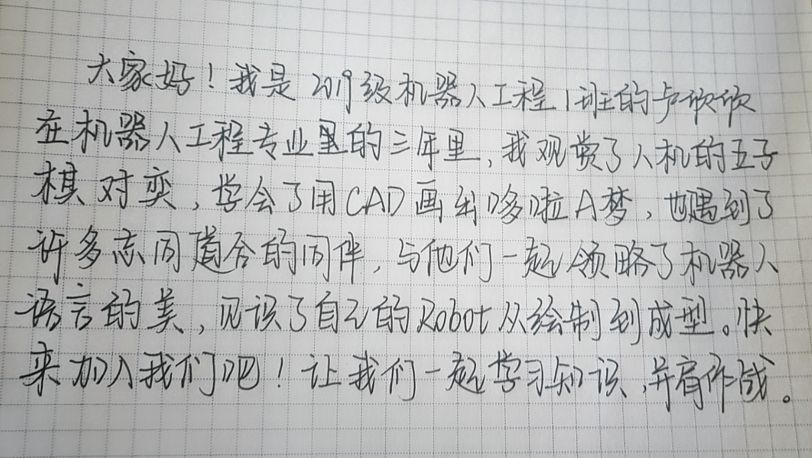 大家好！我是2019级机器人工程1班的卢欣欣
在机器人工程专业里的三年里，我观赏了人机的五子
棋对奕，学会了用CAD画出哆啦A梦，也遇到了
许多志同道合的同伴，与他们一起领略了机器人
语言的美，见识了自己的Robot从绘制到成型。快
来加入我们吧！让我们一起学习知识，并肩作战。